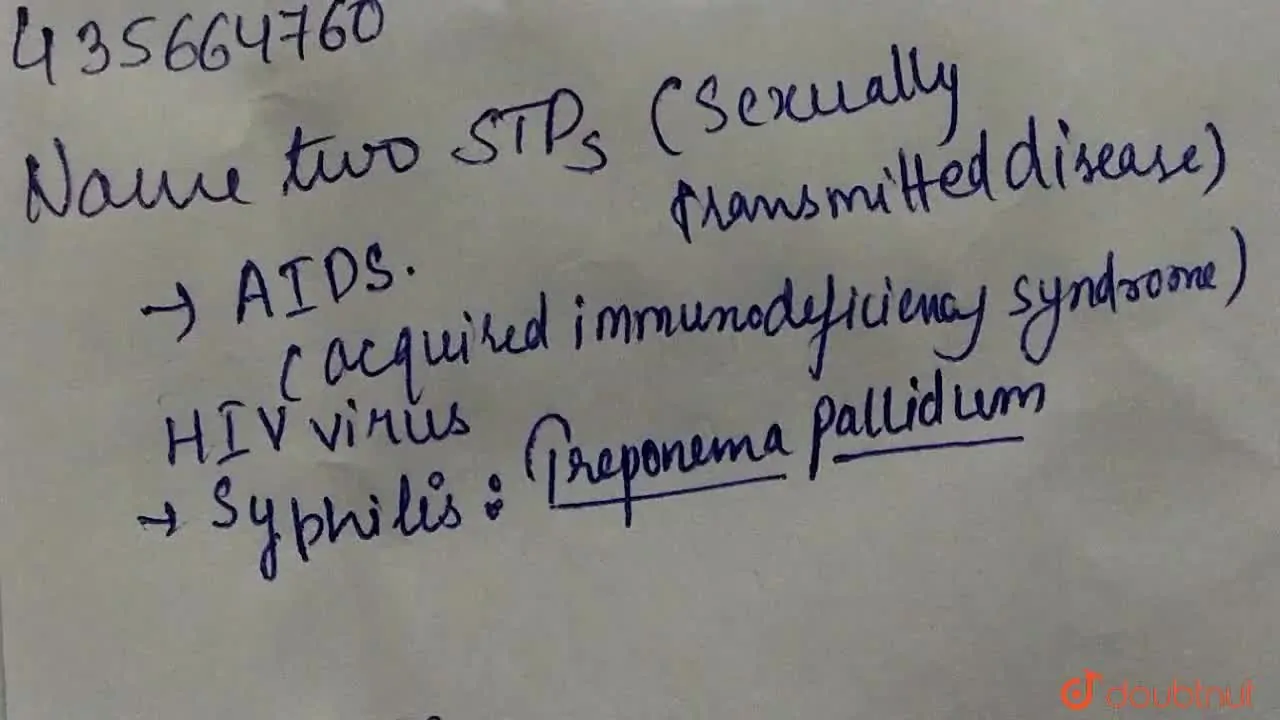 435664760
Name two STDs (Sexually
transmitted disease)
→ AIDS.
(acquired immunodeficiency syndrome)
HIV virus
→ Syphilis: Treponema pallidum
doubtnut